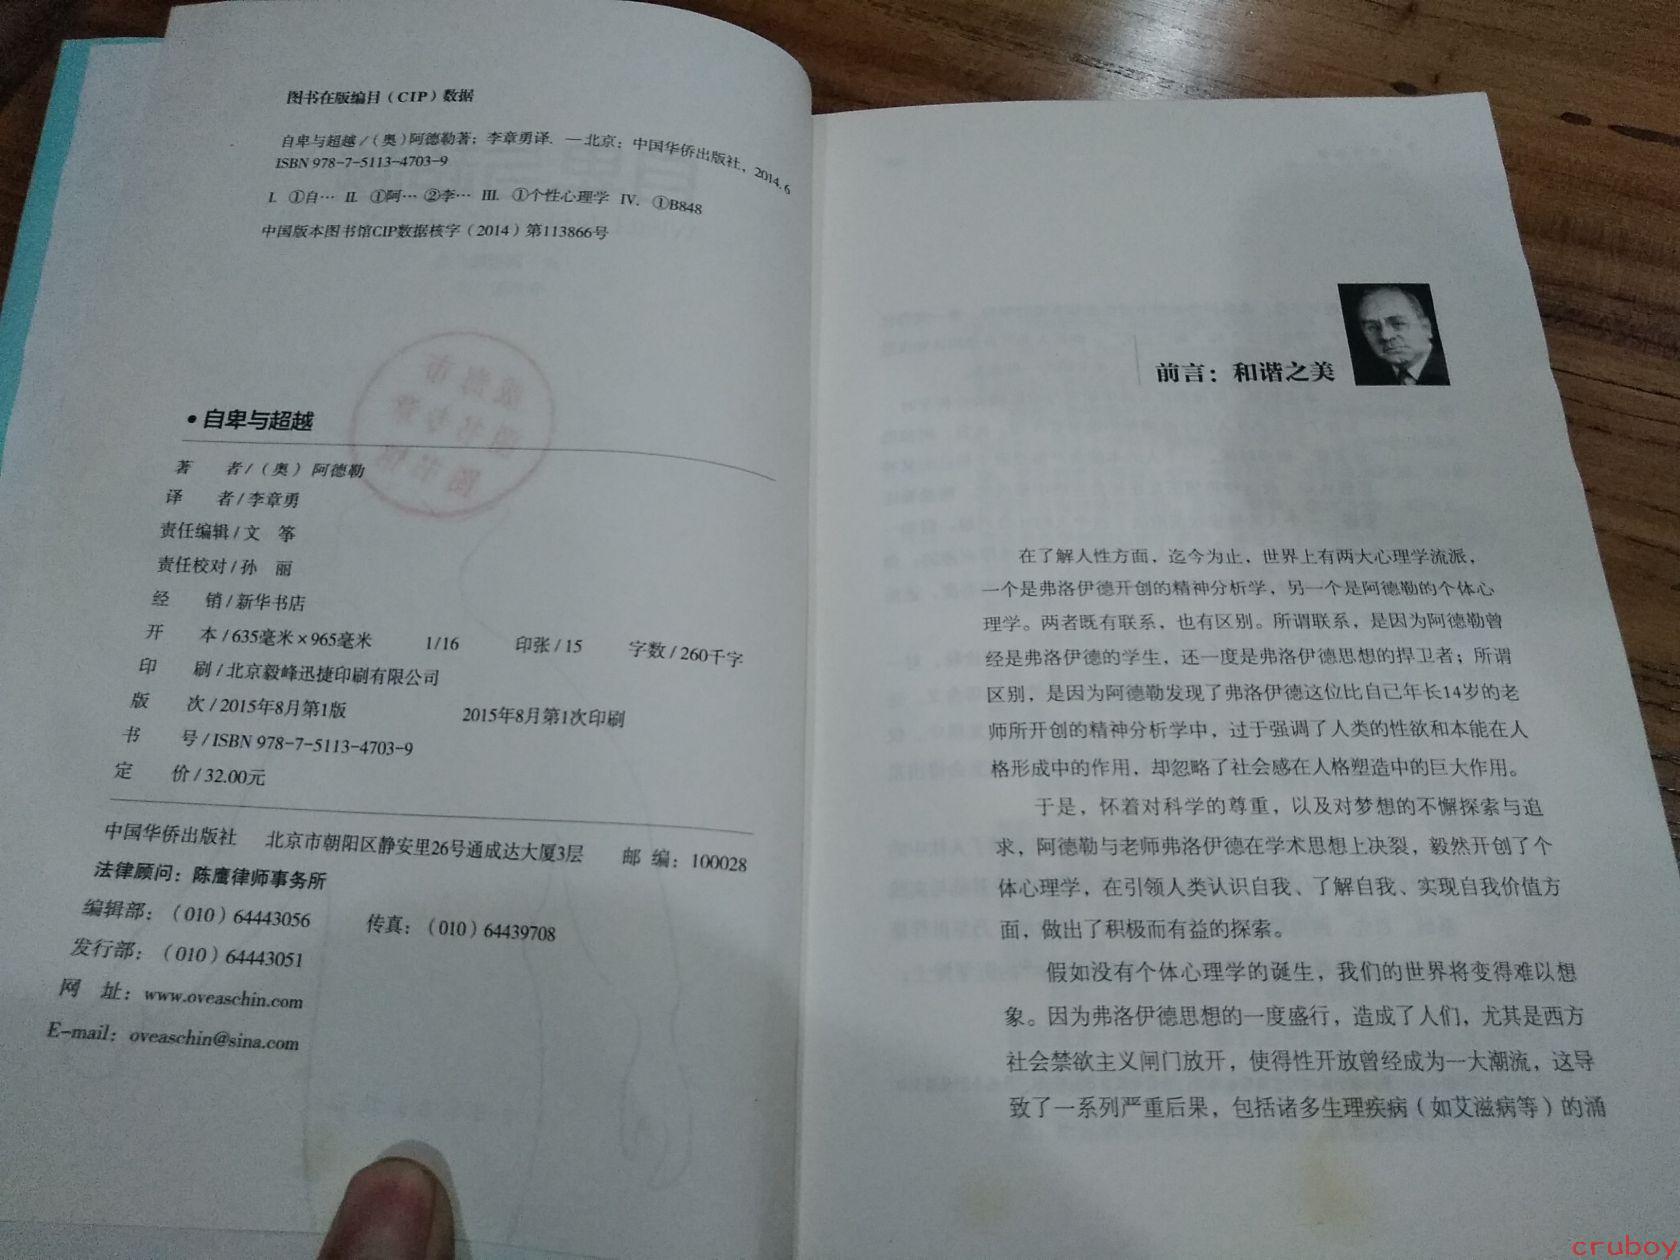 图书在版编目（CIP）数据
自卑与超越/（奥）阿德勒著；李章勇译. —北京：中国华侨出版社，2014.6
ISBN 978-7-5113-4703-9
Ⅰ. ①自… Ⅱ. ①阿… ②李… Ⅲ. ①个性心理学 Ⅳ. ①B848
中国版本图书馆CIP数据核字（2014）第113866号
•自卑与超越
著 者/（奥）阿德勒
译 者/李章勇
责任编辑/文 筝
责任校对/孙 丽
经 销/新华书店
开 本/635毫米×965毫米 1/16 印张/15 字数/260千字
印 刷/北京毅峰迅捷印刷有限公司
版 次/2015年8月第1版 2015年8月第1次印刷
书 号/ISBN 978-7-5113-4703-9
定 价/32.00元
中国华侨出版社 北京市朝阳区静安里26号通成达大厦3层 邮 编：100028
法律顾问：陈鹰律师事务所
编辑部：（010）64443056 传真：（010）64439708
发行部：（010）64443051
网 址：www.oveaschin.com
E-mail：oveaschin@sina.com
前言：和谐之美
在了解人性方面，迄今为止，世界上有两大心理学流派，
一个是弗洛伊德开创的精神分析学，另一个是阿德勒的个体心
理学。两者既有联系，也有区别。所谓联系，是因为阿德勒曾
经是弗洛伊德的学生，还一度是弗洛伊德思想的捍卫者；所谓
区别，是因为阿德勒发现了弗洛伊德这位比自己年长14岁的老
师所开创的精神分析学中，过于强调了人类的性欲和本能在人
格形成中的作用，却忽略了社会感在人格塑造中的巨大作用。
于是，怀着对科学的尊重，以及对梦想的不懈探索与追
求，阿德勒与老师弗洛伊德在学术思想上决裂，毅然开创了个
体心理学，在引领人类认识自我、了解自我、实现自我价值方
面，做出了积极而有益的探索。
假如没有个体心理学的诞生，我们的世界将变得难以想
象。因为弗洛伊德思想的一度盛行，造成了人们，尤其是西方
社会禁欲主义闸门放开，使得性开放曾经成为一大潮流，这导
致了一系列严重后果，包括诸多生理疾病（如艾滋病等）的涌
cruboy